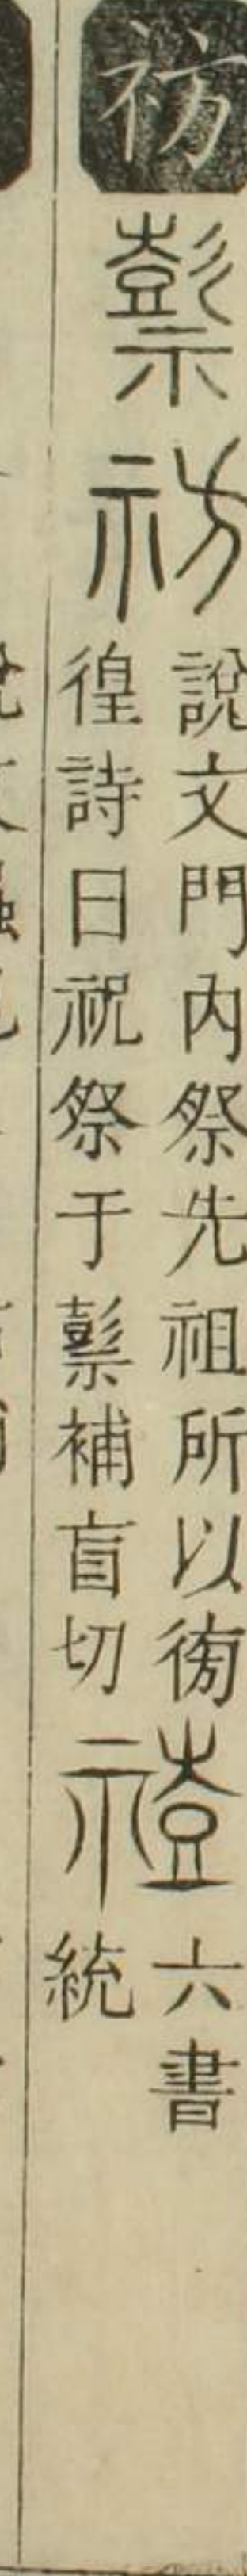 祊
𥛱 祊
說文門內祭先祖所以徬
徨詩曰祝祭于𥛱補盲切
六書
統